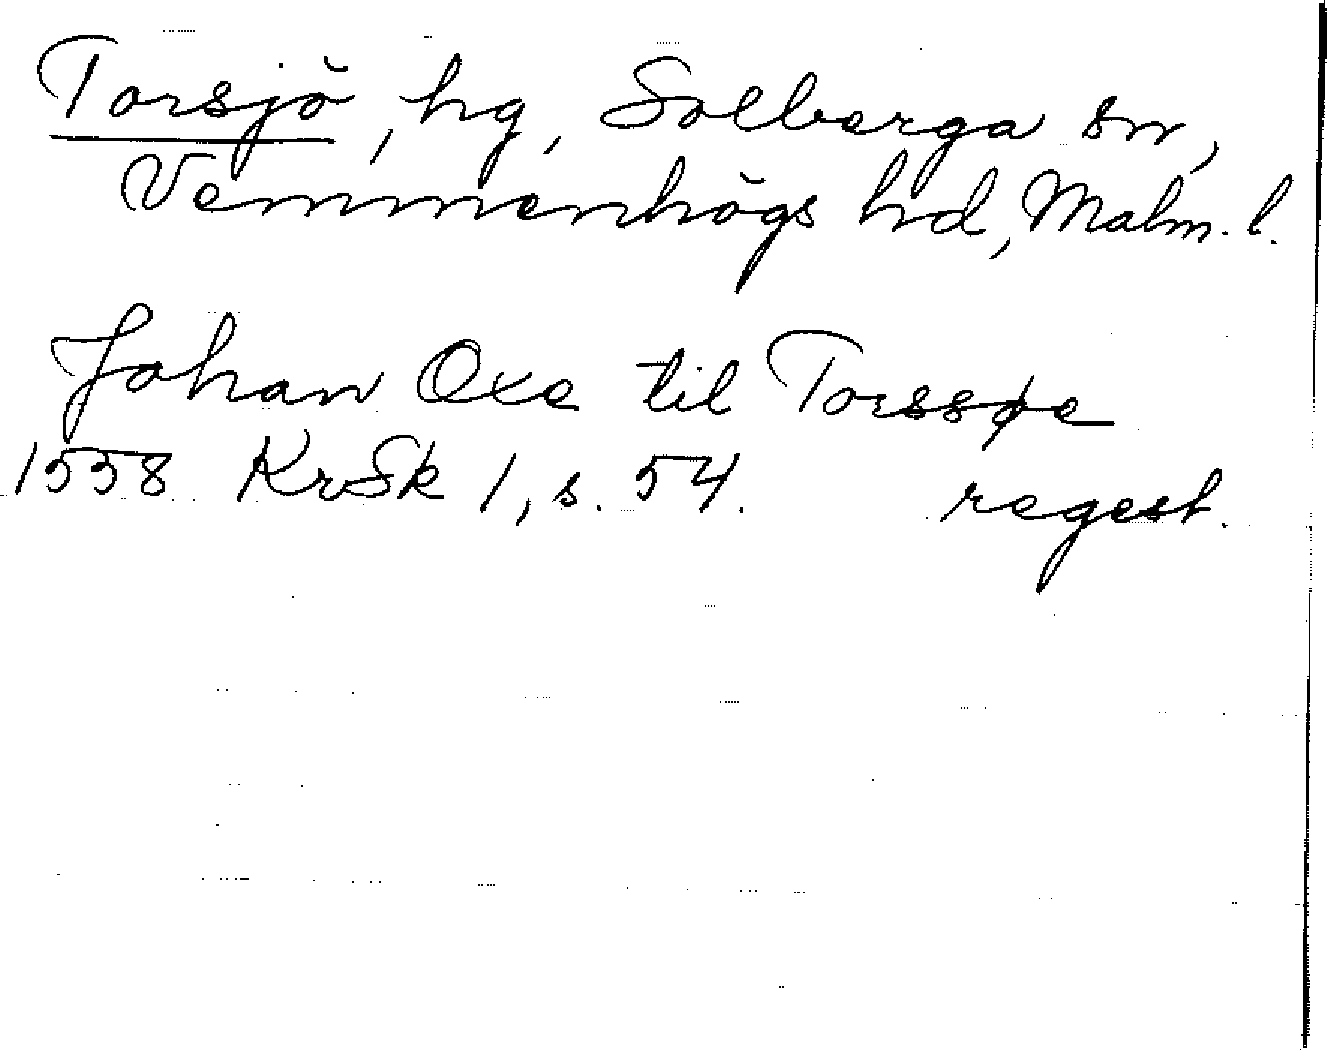 Torsjö, hg, Solberga sn,
Vemmenhögs hd, Malm. l.
Johan Oxe til Torssøe
1558 KrSk 1, s. 54. regest.